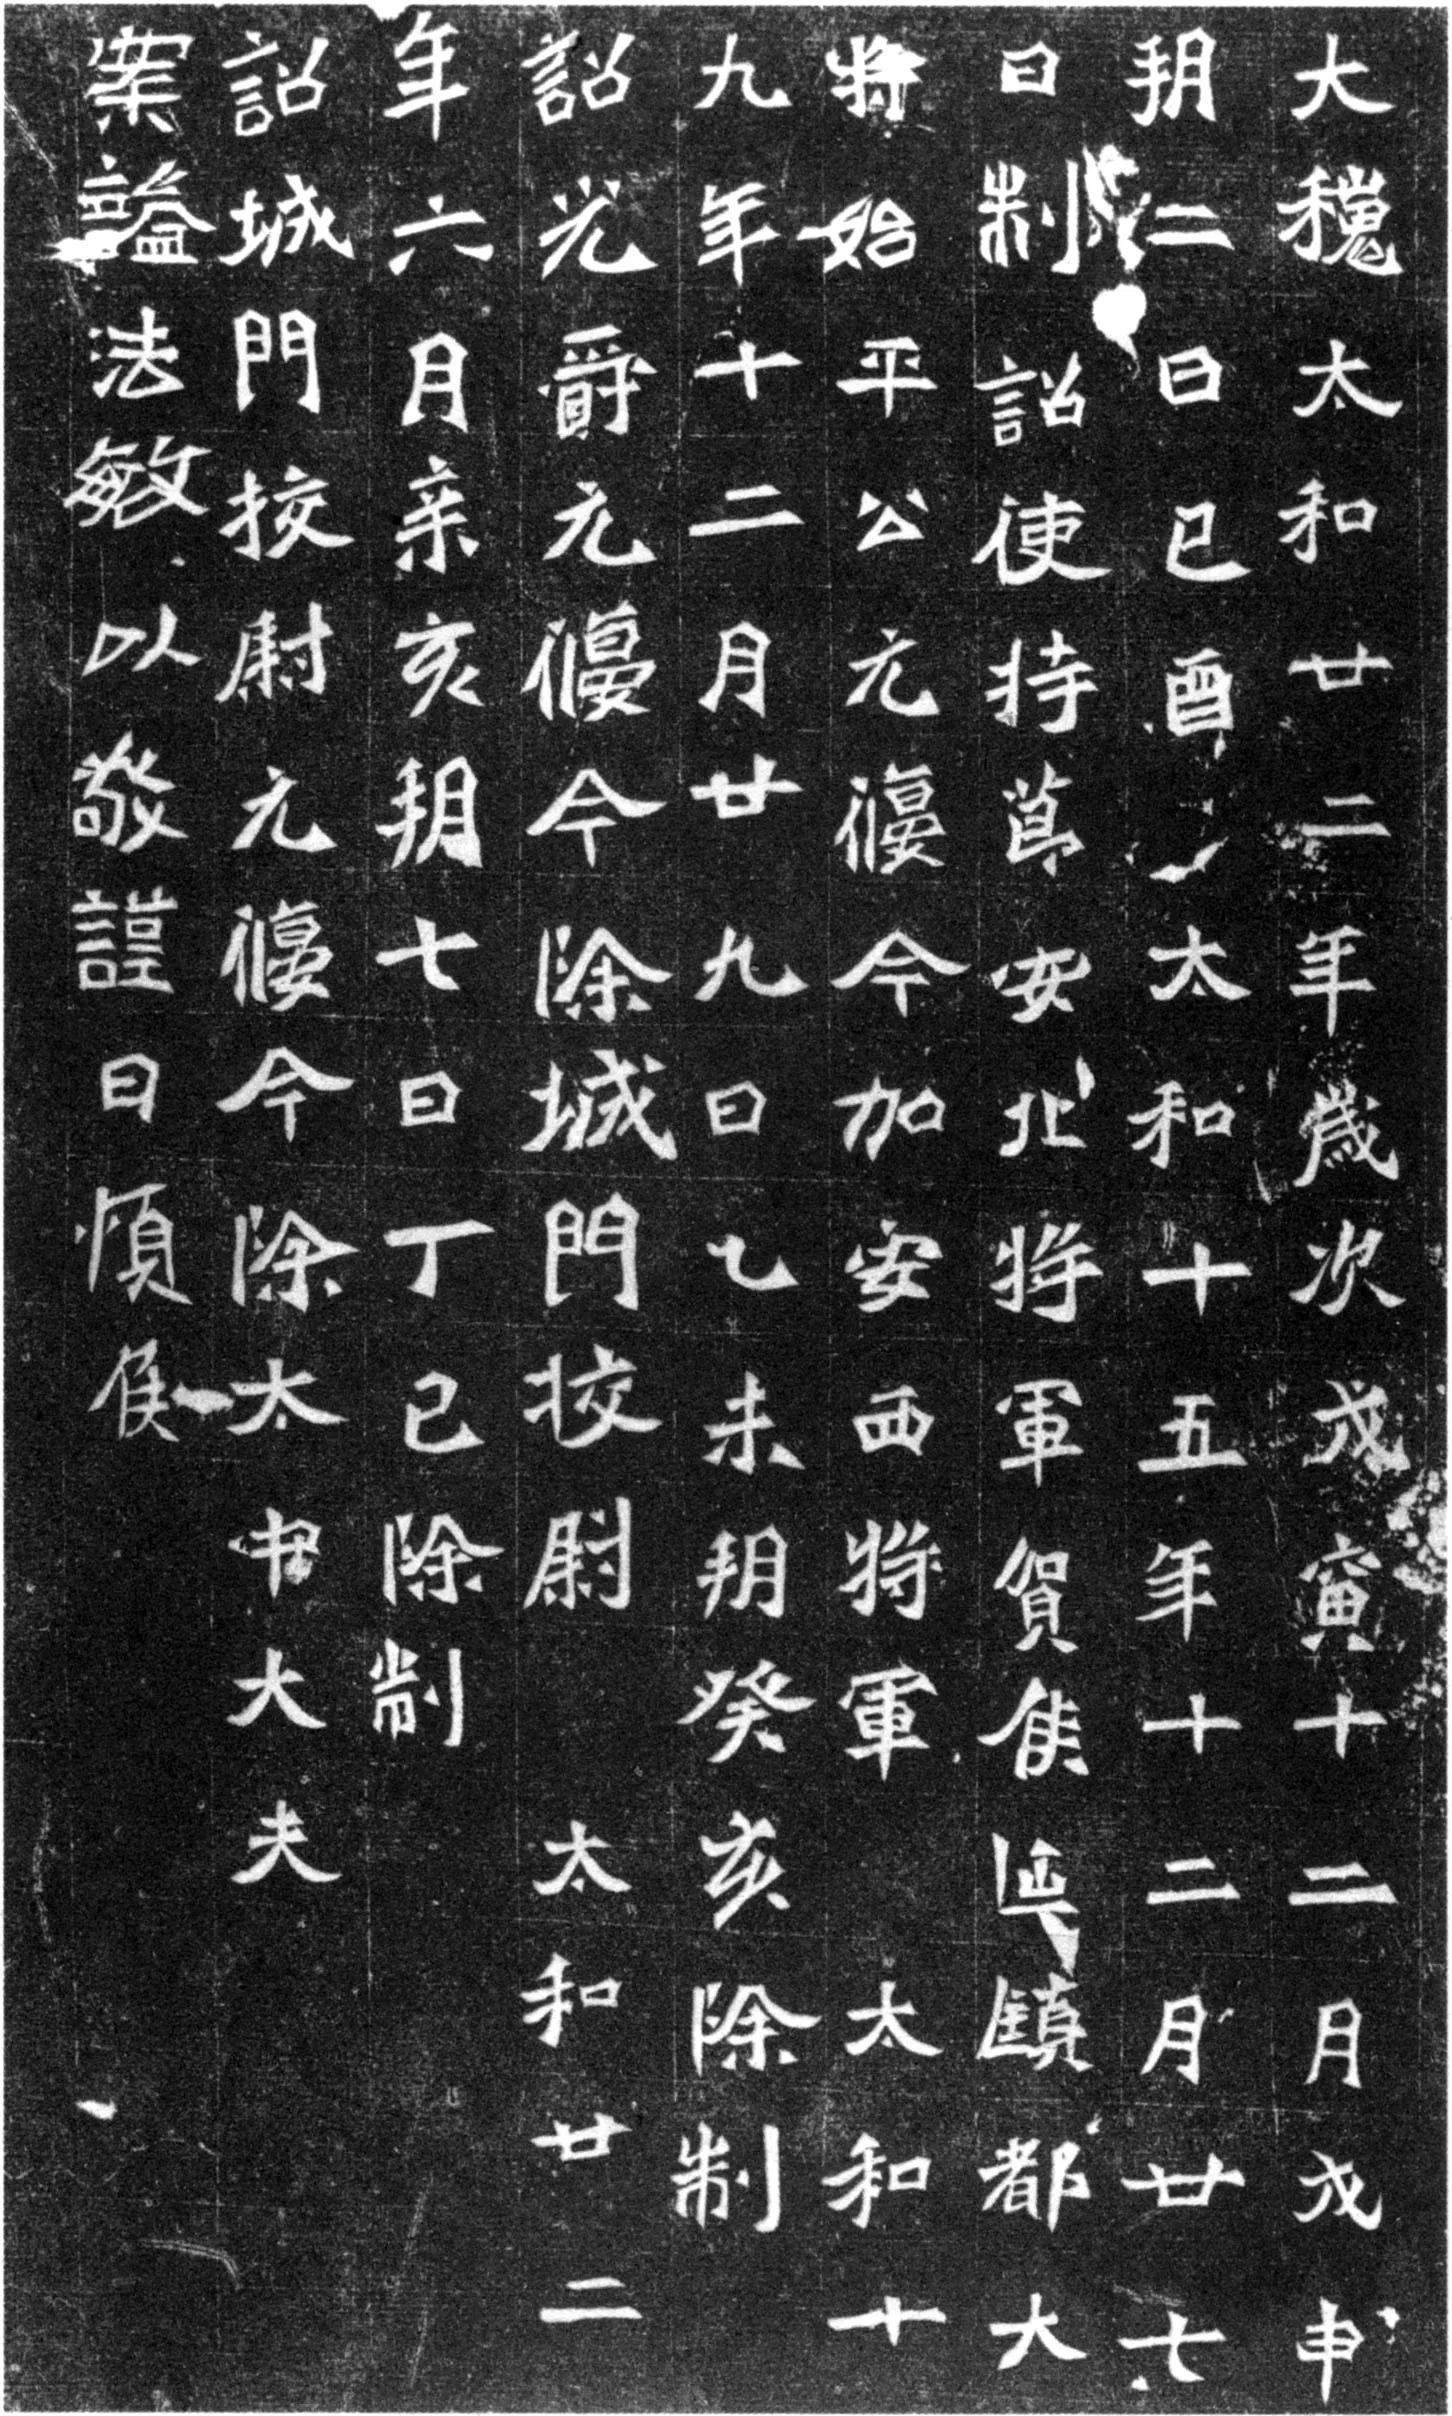 大魏太和廿二年歲次戊寅十二月戊申
朔二日己酉太和十五年十二月廿七
日制詔使持節安北將軍賀侯延鎮都大
將始平公元偃今加安西將軍太和十
九年十二月廿九日乙未朔癸亥除制
詔光爵元偃今除城門挍尉太和廿二
年六月辛亥朔七日丁巳除制
詔城門挍尉元偃今除太中大夫
案謚法敏以敬謹曰順侯